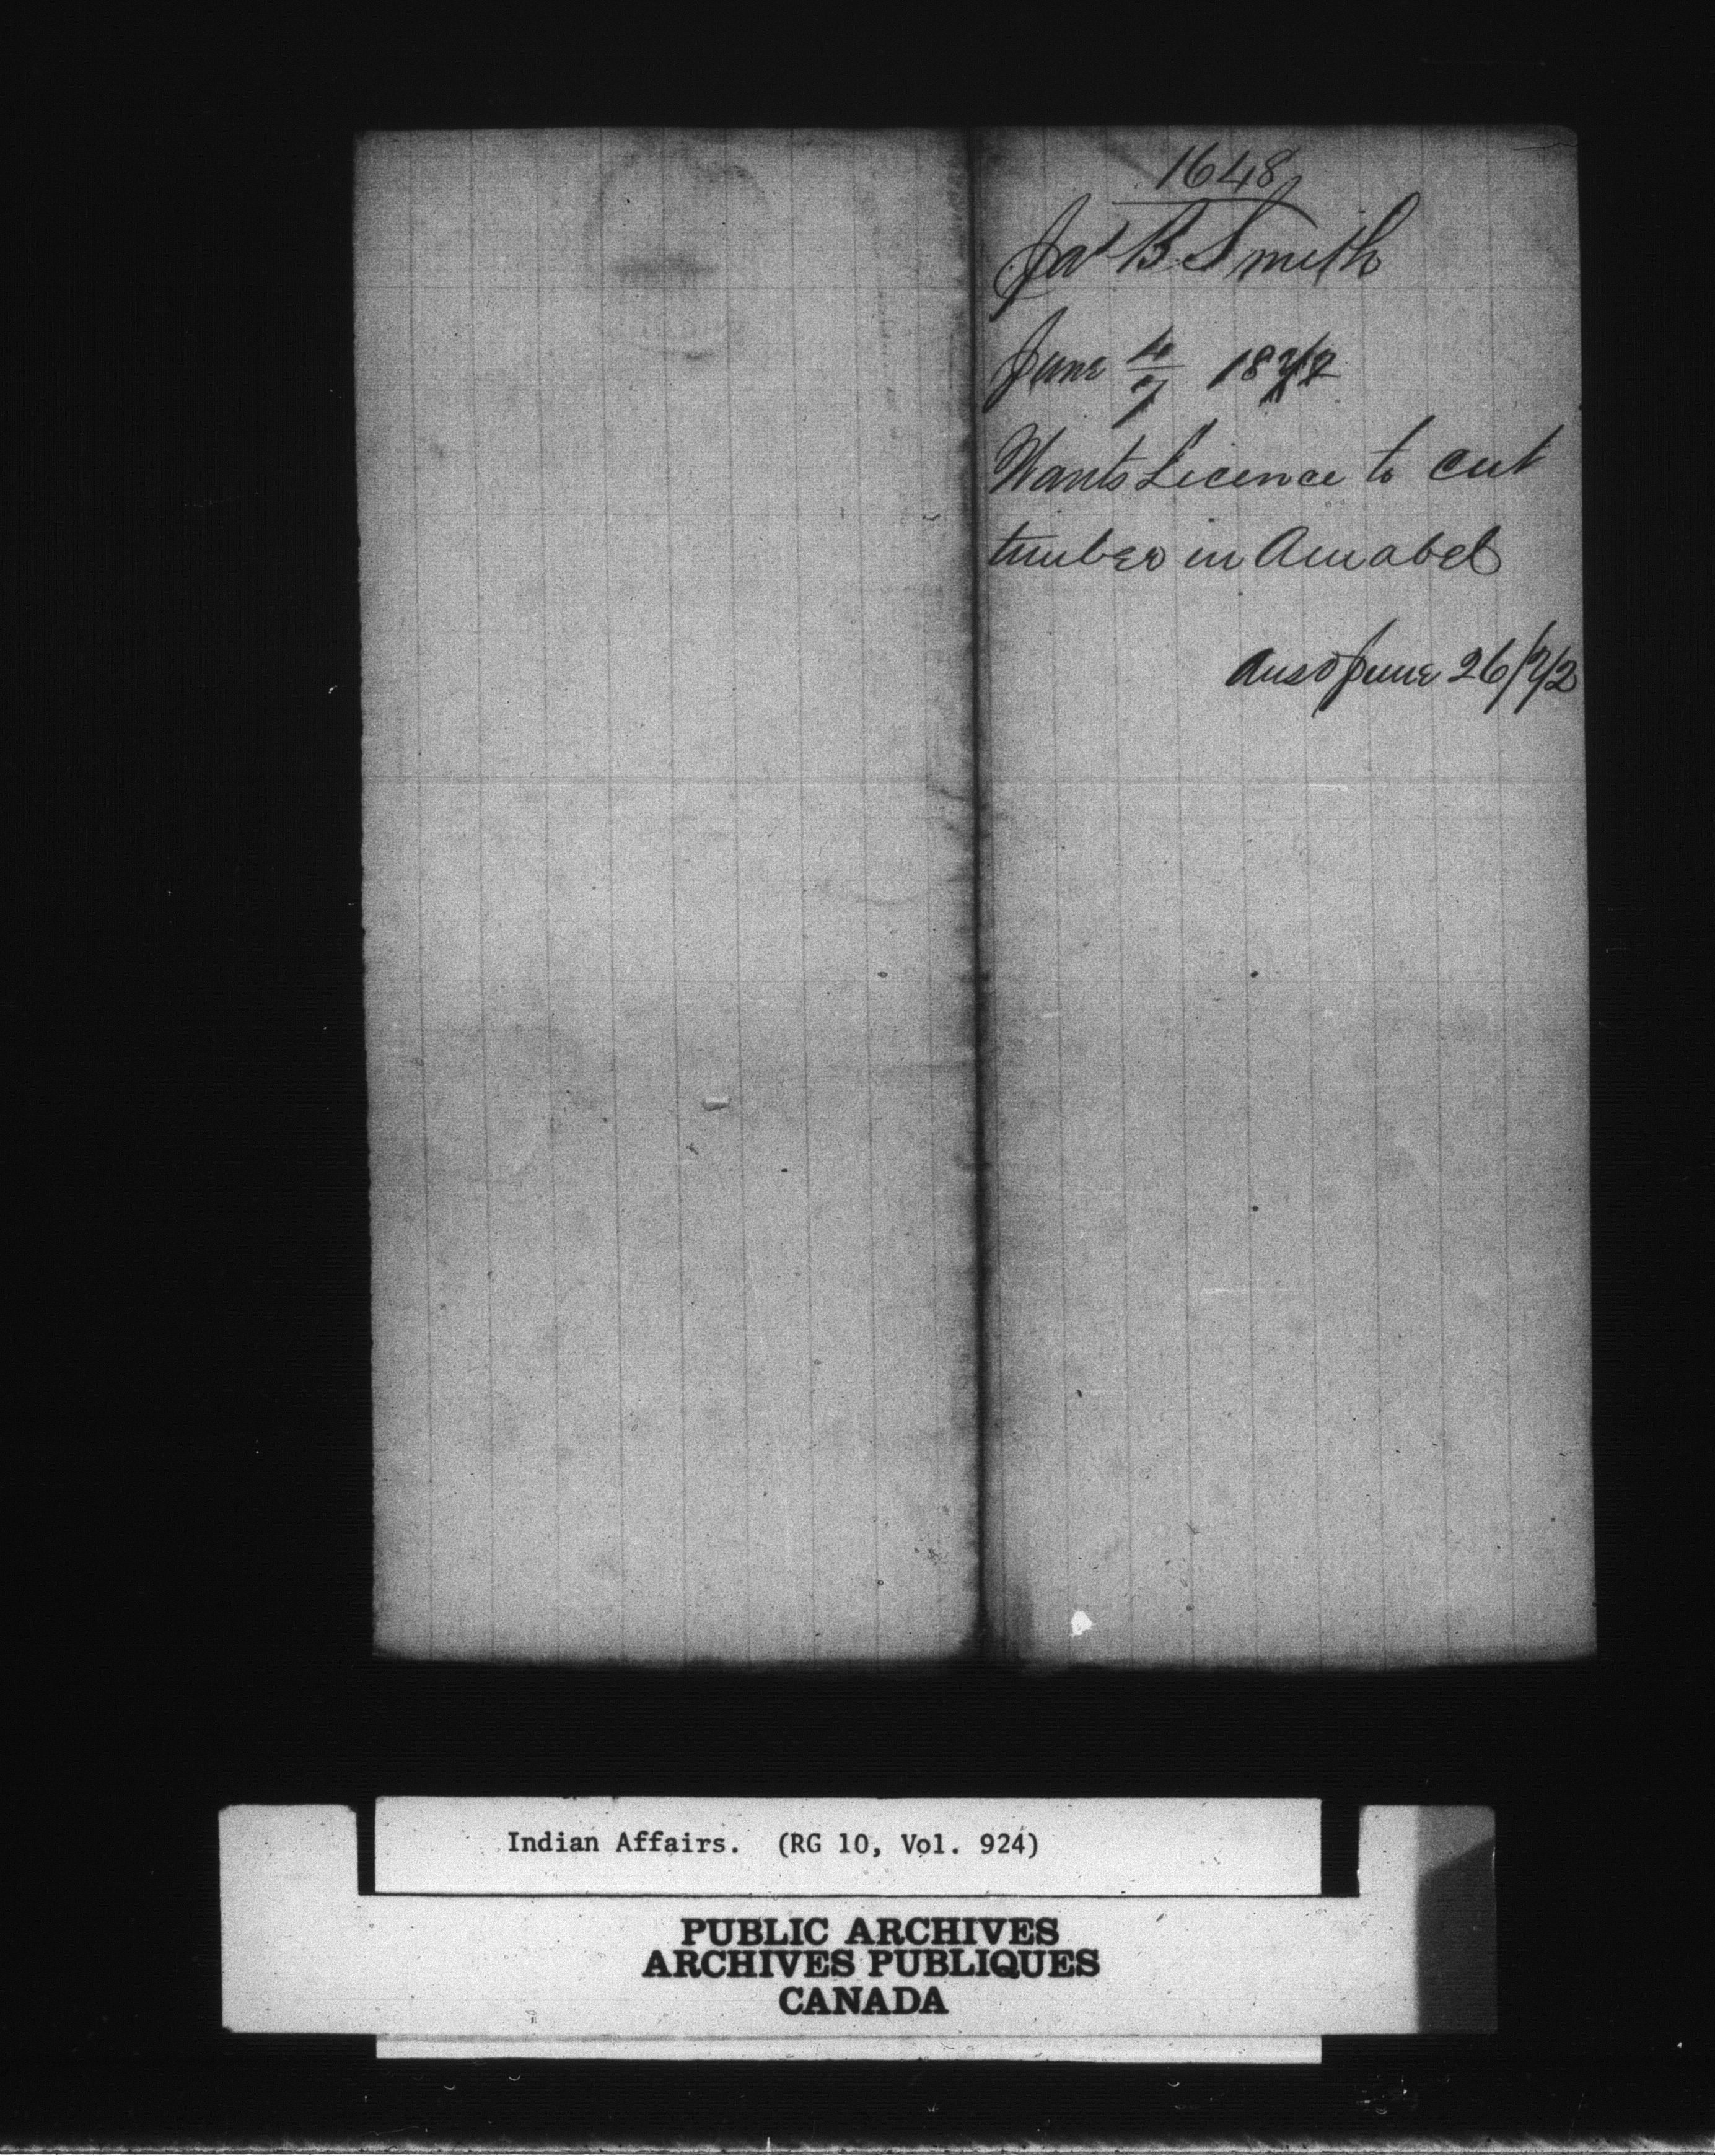 1648
Jas B. Smith
June 4/7 1872
Wants Licence to cut
timber in Amabel
Ansd June 26/72
Indian Affairs. (RG 10, Vol. 924)
PUBLIC ARCHIVES
ARCHIVES PUBLIQUES
CANADA